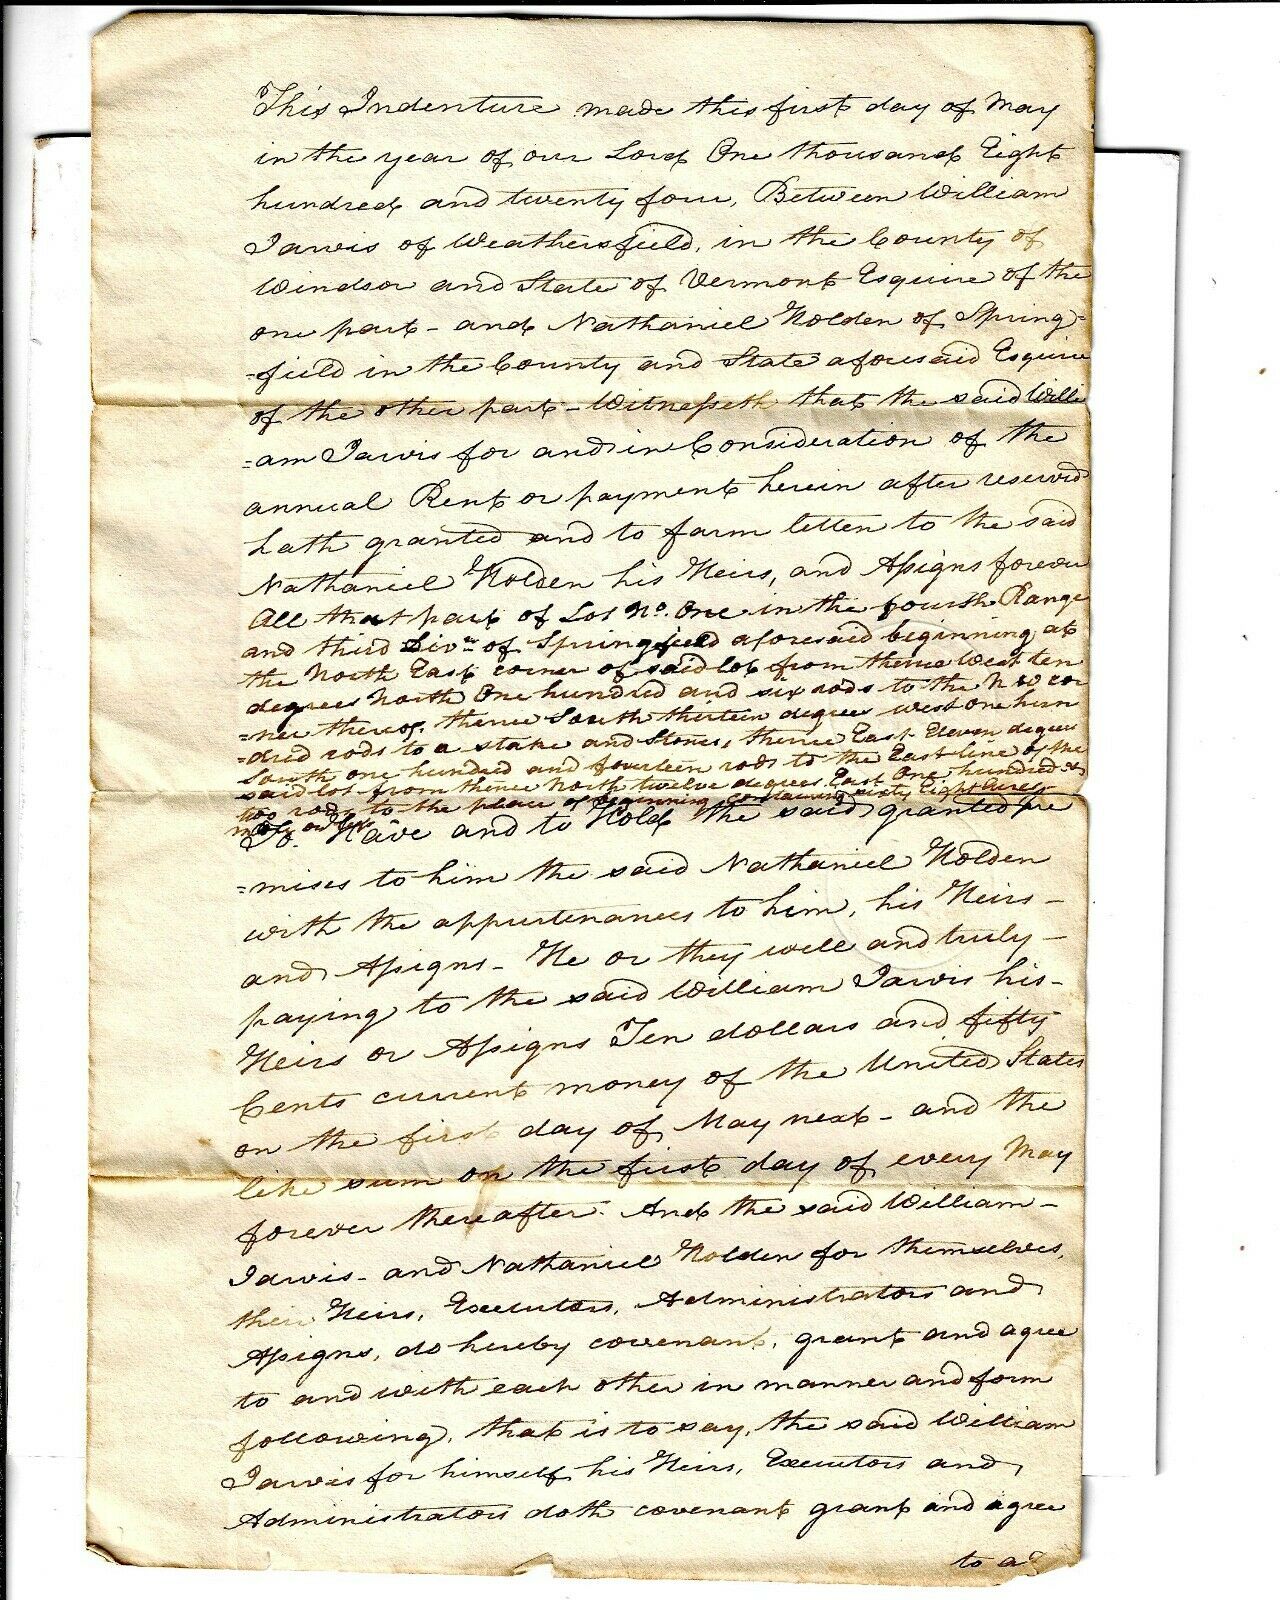 This Indenture made this first day of May
in the year of our Lord One thousand Eight
hundred and twenty four, Between William
Jarvis of Weathersfield, in the County of
Windsor and State of Vermont Esquire of the
one part – and Nathaniel Holden of Spring=
=field in the County and State aforesaid Esquire
of the other part – Witnesseth that the said Willi
=am Jarvis for and in Consideration of the
annual Rent or payment herein after reserved
hath granted and to farm letten to the said
Nathaniel Holden his Heirs, and Assigns forever
All that part of Lot No. One in the fourth Range
and third Divn. of Springfield aforesaid beginning at
the North East corner of said lot from thence West ten
degrees North One hundred and six rods to the N W cor
=ner thereof, thence South thirteen degrees west one hun
=dred rods to a stake and Stones, thence East Eleven degrees
South one hundred and fourteen rods to the East line of the
said lot from thence North twelve degrees East One hundred &
two rods to the place of beginning, containing sixty Eight Acres
more or less
To Have and to Hold the said granted pre
=mises to him the said Nathaniel Holden
with the appurtenances to him, his Heirs –
and Assigns – He or they well and truly –
paying to the said William Jarvis his –
Heirs or Assigns Ten dollars and fifty
Cents current money of the United States
on the first day of May next – and the
like sum on the first day of every May
forever thereafter. And the said William –
Jarvis – and Nathaniel Holden for themselves,
their Heirs, Executors, Administrators and
Assigns, do hereby covenant, grant and agree
to and with each other in manner and form
following, that is to say, the said William
Jarvis for himself, his Heirs, Executors and
Administrators doth covenant grant and agree
to a